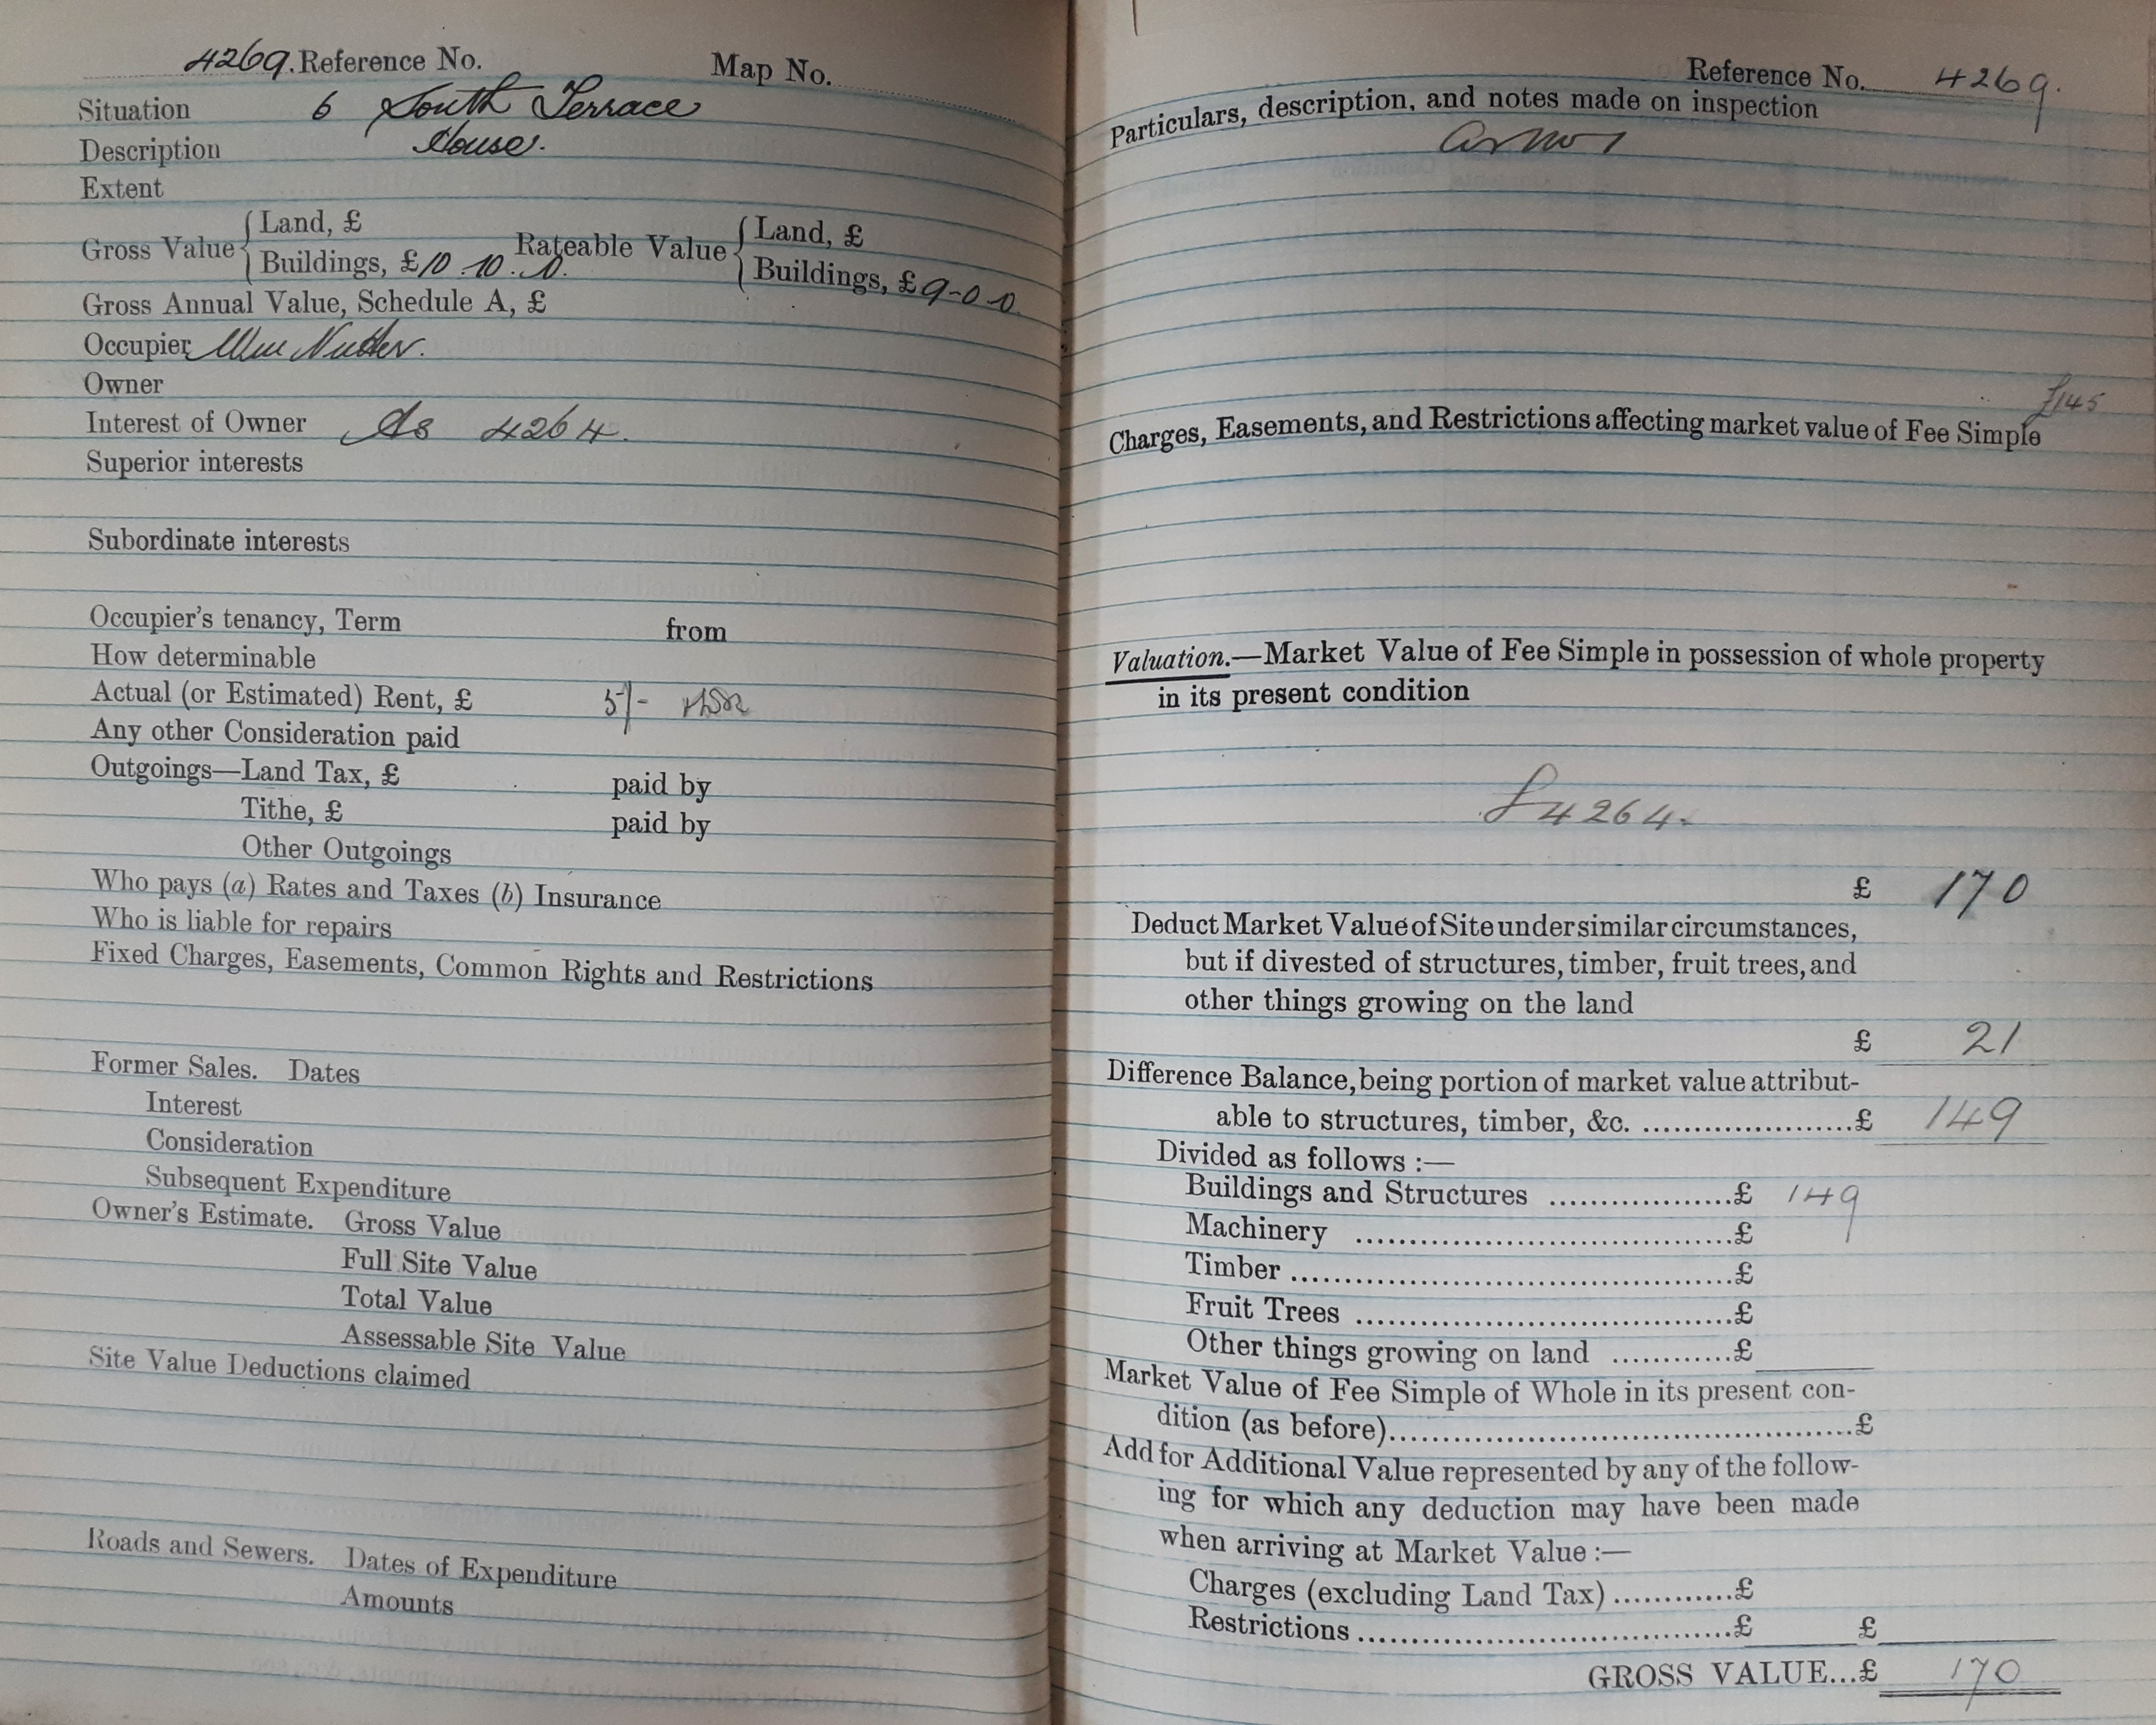 4269. Reference No. Map No.
Situation 6 South Terrace
Description House.
Extent
Gross Value { Land, £ Rateable Value { Land, £
Buildings, £10.10.0. Buildings, £9-0-0.
Gross Annual Value, Schedule A, £
Occupier Wm Nutter.
Owner
Interest of Owner As 4264.
Superior interests
Subordinate interests
Occupier's tenancy, Term from
How determinable
Actual (or Estimated) Rent, £ 5/-
Any other Consideration paid
Outgoings—Land Tax, £ paid by
Tithe, £ paid by
Other Outgoings
Who pays (a) Rates and Taxes (b) Insurance
Who is liable for repairs
Fixed Charges, Easements, Common Rights and Restrictions
Former Sales. Dates
Interest
Consideration
Subsequent Expenditure
Owner's Estimate. Gross Value
Full Site Value
Total Value
Assessable Site Value
Site Value Deductions claimed
Roads and Sewers. Dates of Expenditure
Amounts
Reference No. 4269.
Particulars, description, and notes made on inspection
£145
Charges, Easements, and Restrictions affecting market value of Fee Simple
Valuation.—Market Value of Fee Simple in possession of whole property
in its present condition
4264.
£ 170
Deduct Market Value of Site under similar circumstances,
but if divested of structures, timber, fruit trees, and
other things growing on the land
£ 21
Difference Balance, being portion of market value attribut-
able to structures, timber, &c. ....................£ 149
Divided as follows :—
Buildings and Structures ..................£ 149
Machinery .....................................£
Timber ...........................................£
Fruit Trees .....................................£
Other things growing on land ............£
Market Value of Fee Simple of Whole in its present con-
dition (as before)..............................................£
Add for Additional Value represented by any of the follow-
ing for which any deduction may have been made
when arriving at Market Value :—
Charges (excluding Land Tax) ............£
Restrictions .....................................£ £
GROSS VALUE...£ 170